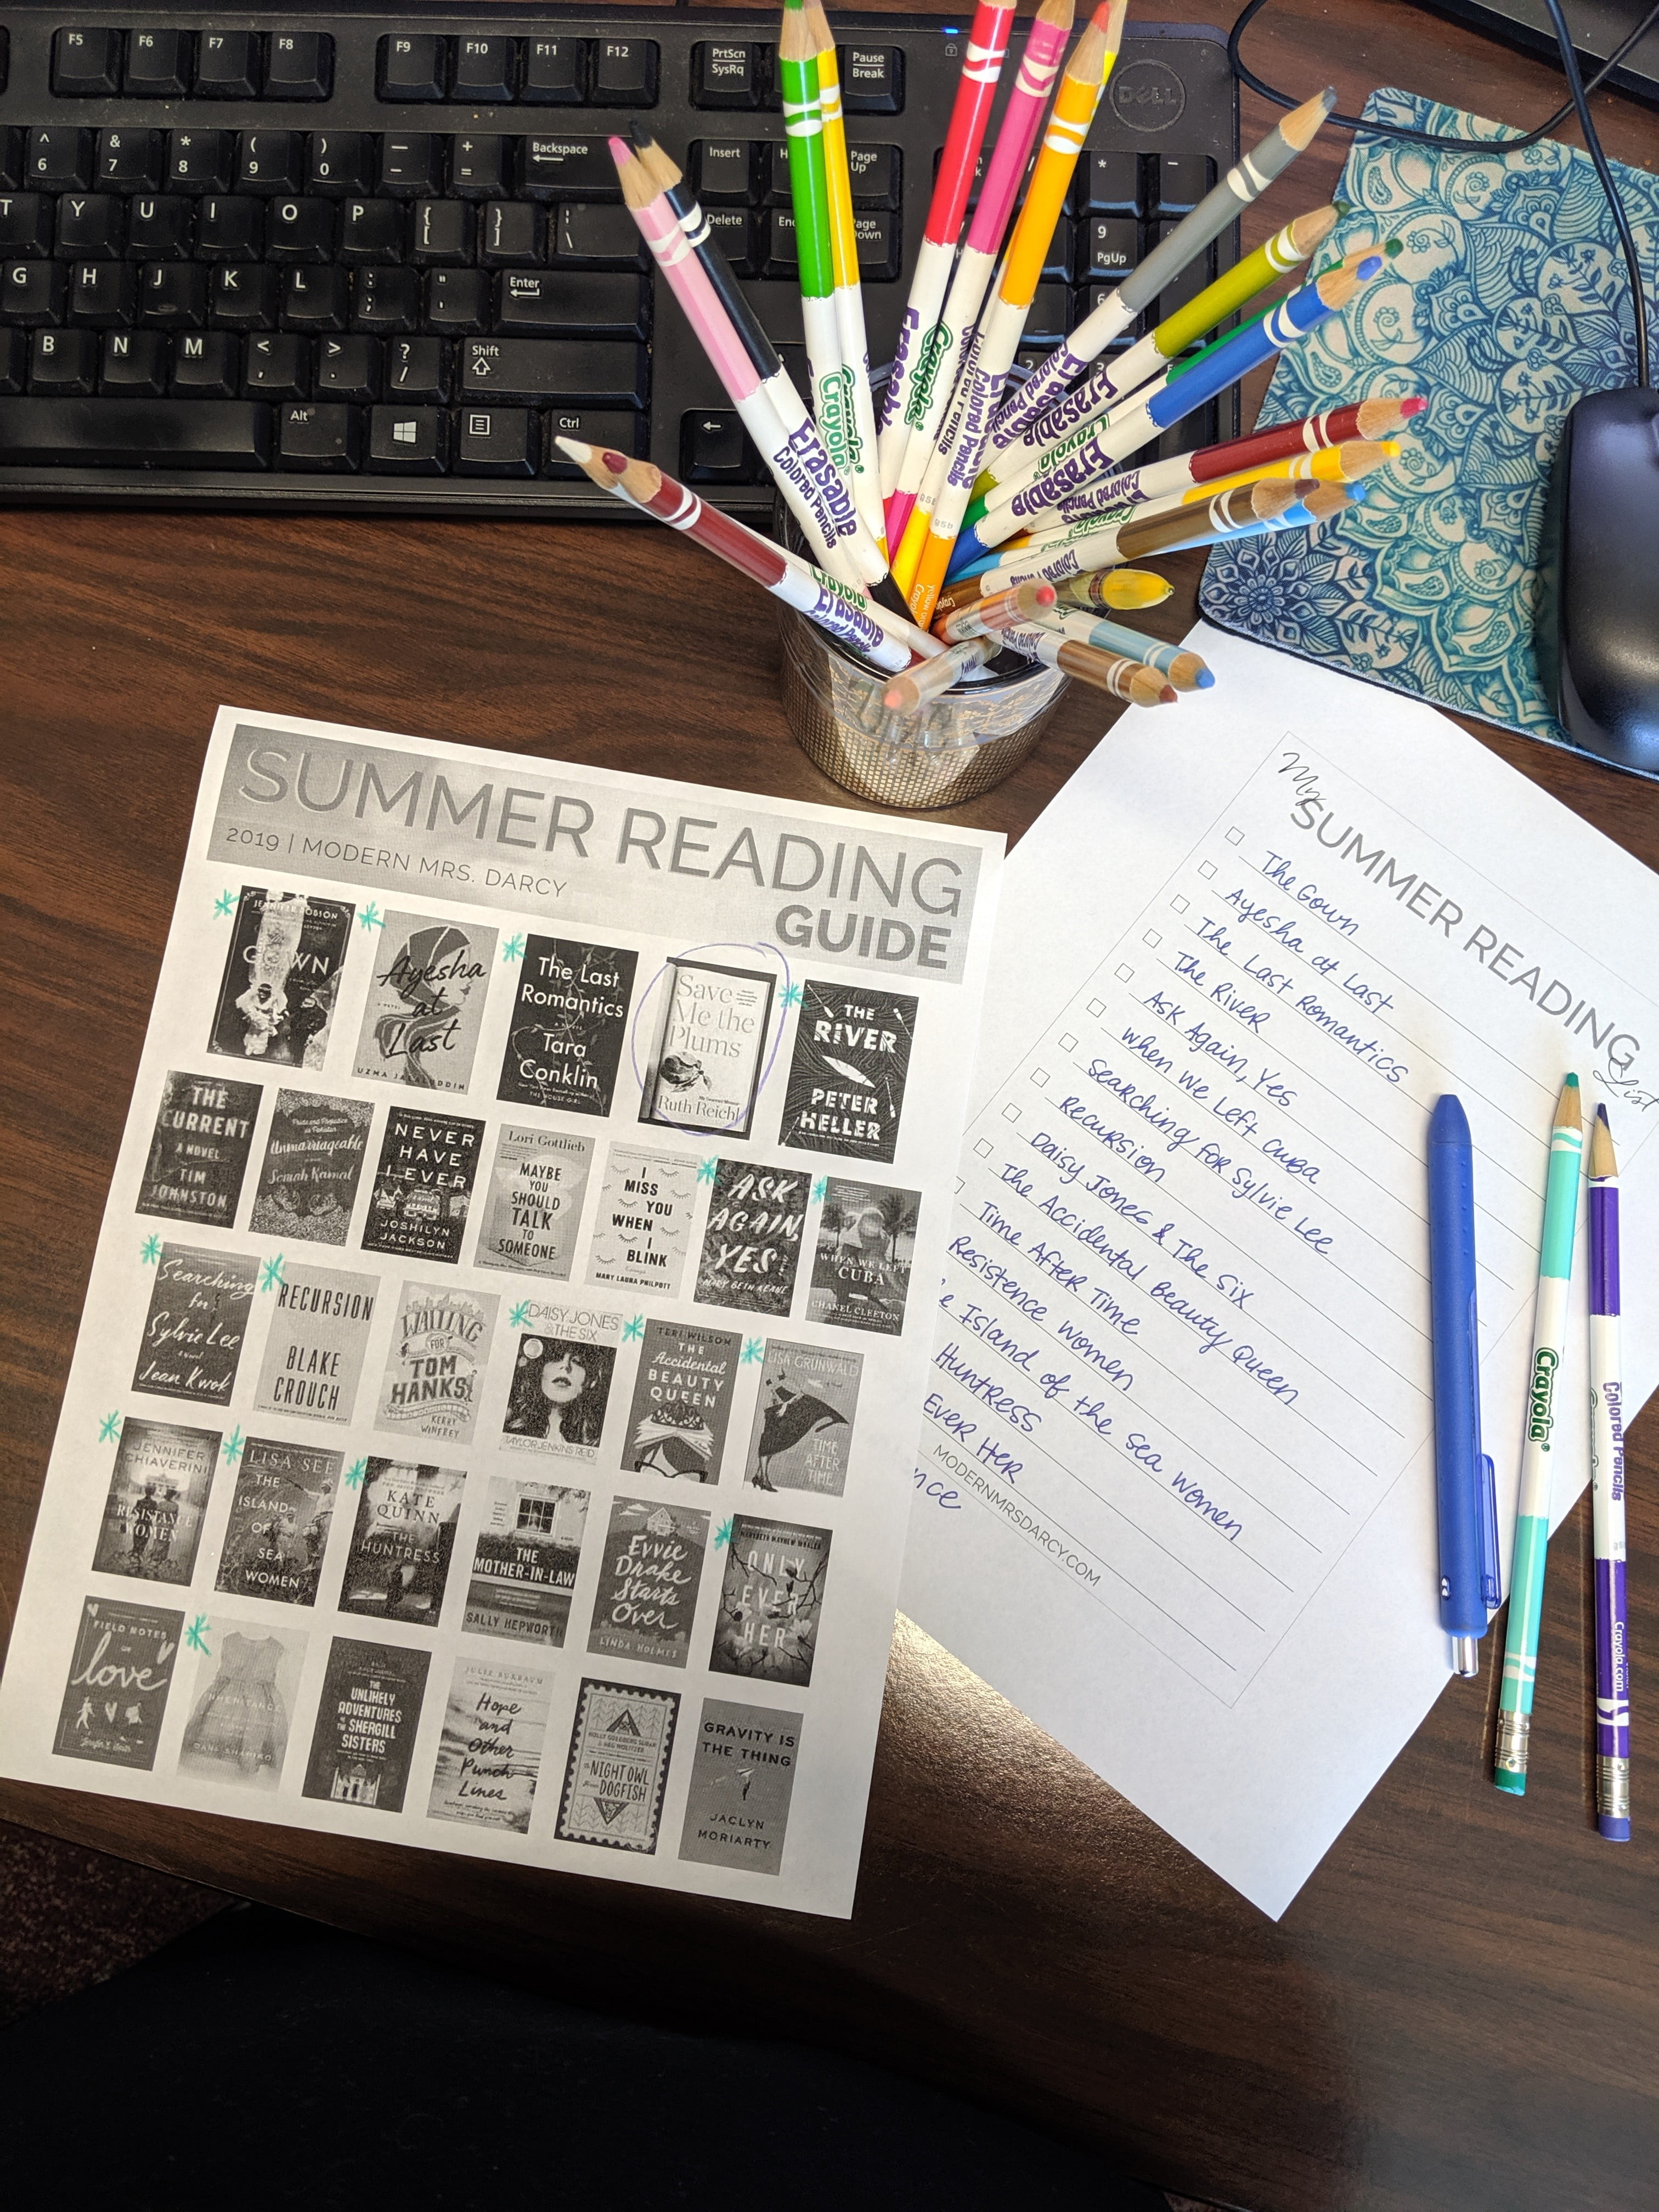 F5 F6 F7 F8 F9 F10 F11 F12 PrtScn SysRq Pause Break DELL
^ 6 & 7 * 8 ( 9 ) 0 — – + = Backspace Insert Page Up * –
T Y U I O P { [ } ] \ Delete Page Down 9 PgUp
G H J K L : ; " ' Enter 6
B N M < , > . ? / Shift
Alt Ctrl
Erasable
Colored Pencils
Crayola
SUMMER READING
2019 | MODERN MRS. DARCY
GUIDE
JENNIFER ROBSON
GOWN
Ayesha
at
Last
UZMA JALALUDDIN
The Last
Romantics
Tara
Conklin
THE HOUSE GIRL
Save
Me the
Plums
Ruth Reichl
THE
RIVER
PETER
HELLER
THE
CURRENT
A NOVEL
TIM
JOHNSTON
Unmarriageable
Soniah Kamal
NEVER
HAVE
I EVER
JOSHILYN
JACKSON
Lori Gottlieb
MAYBE
YOU
SHOULD
TALK
TO
SOMEONE
I
MISS
YOU
WHEN
I
BLINK
MARY LAURA PHILPOTT
ASK
AGAIN,
YES
MARY BETH KEANE
WHEN WE LEFT
CUBA
CHANEL CLEETON
Searching
for
Sylvie Lee
Jean Kwok
RECURSION
BLAKE
CROUCH
WAITING
FOR
TOM
HANKS
KERRY
WINFREY
DAISY JONES
& THE SIX
TAYLOR JENKINS REID
TERI WILSON
THE
Accidental
BEAUTY
QUEEN
LISA GRUNWALD
TIME
AFTER
TIME
JENNIFER
CHIAVERINI
RESISTANCE
WOMEN
LISA SEE
THE
ISLAND
OF
SEA
WOMEN
KATE
QUINN
THE
HUNTRESS
THE
MOTHER-IN-LAW
SALLY HEPWORTH
Evvie
Drake
Starts
Over
LINDA HOLMES
ONLY
EVER
HER
FIELD NOTES
love
INHERITANCE
DANI SHAPIRO
THE
UNLIKELY
ADVENTURES
OF THE
SHERGILL
SISTERS
JULIE BUXBAUM
Hope
and
Other
Punch
Lines
NIGHT OWL
DOGFISH
GRAVITY IS
THE THING
JACLYN
MORIARTY
My
SUMMER READING
List
The Gown
Ayesha at Last
The Last Romantics
The River
Ask Again, Yes
When We Left Cuba
Searching for Sylvie Lee
Recursion
Daisy Jones & The Six
The Accidental Beauty Queen
Time After Time
Resistence Women
e Island of the Sea Women
Huntress
Ever Her
nce
MODERNMRSDARCY.COM
Crayola
Colored Pencils
Crayola.com